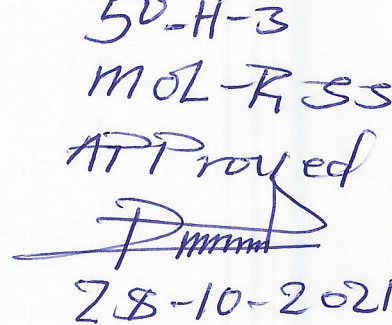 50-H-3
MOL-R-SS
APProved
28-10-2021